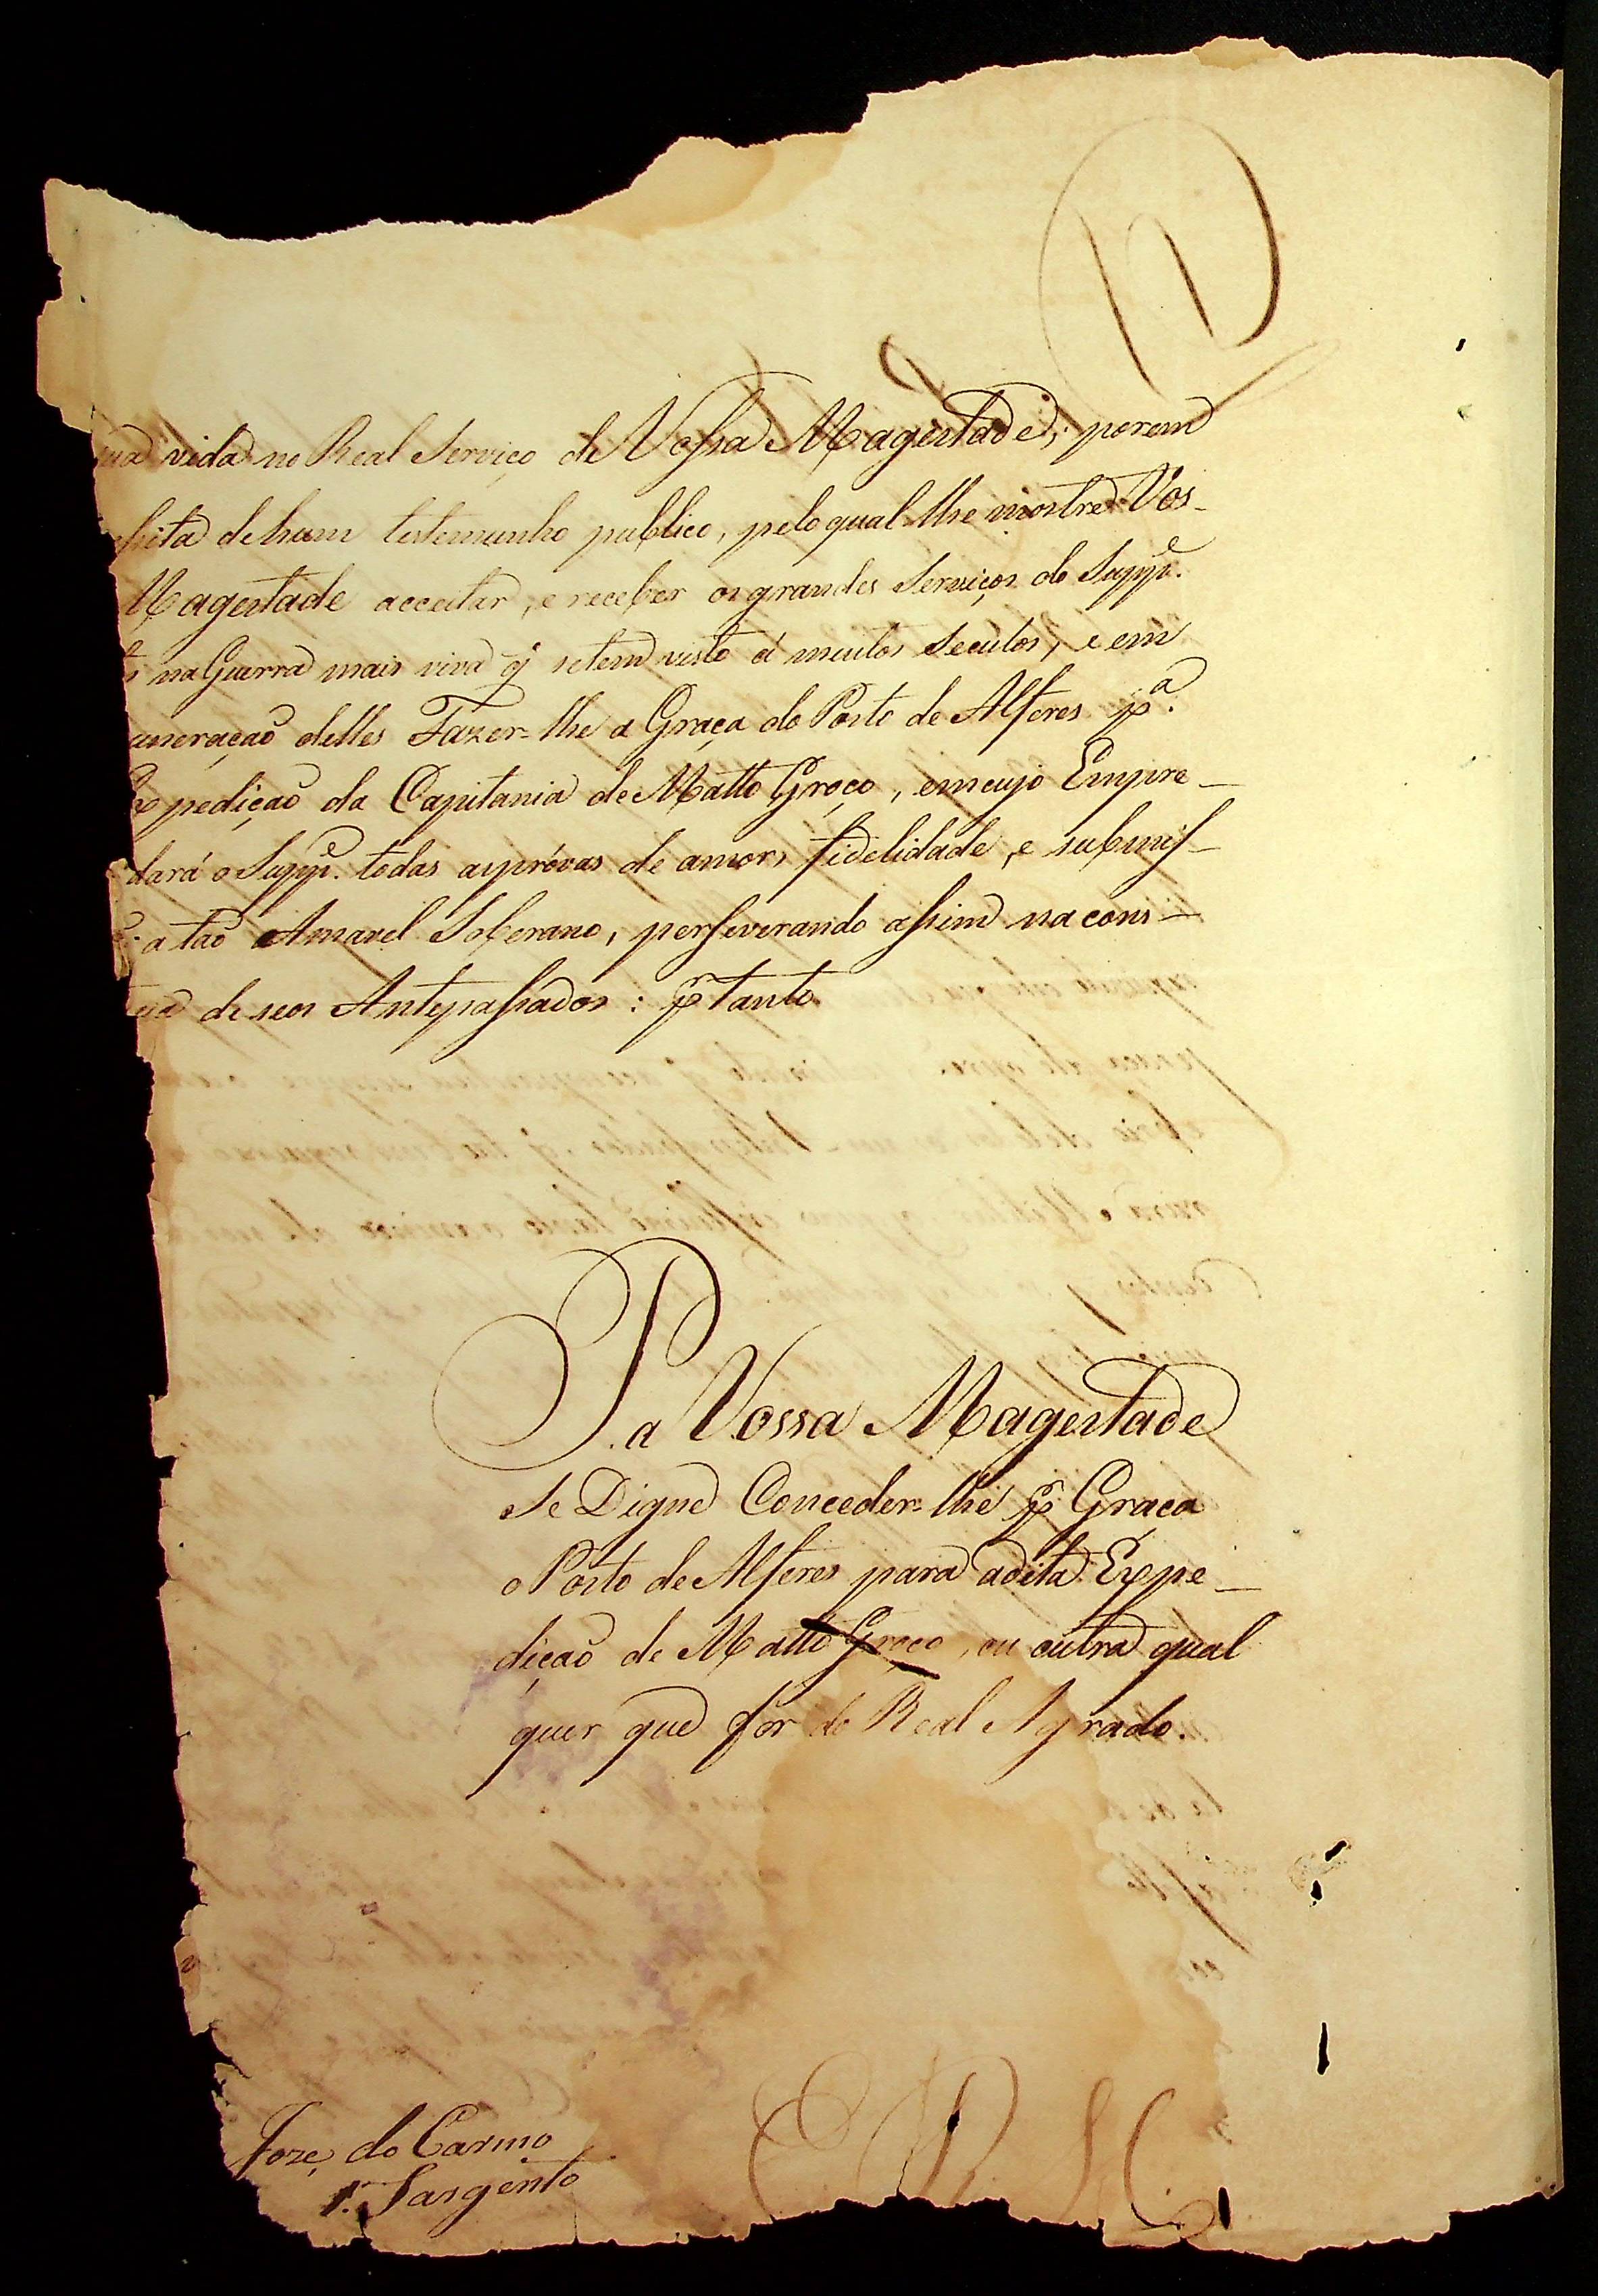 vida no Real Serviço de Vossa Magestade; porem
de hum testemunho publico, pelo qual lhe mostre Vos-
Magestade acceitar, e receber os grandes Serviços do Supp.e
na Guerra mais viva q̃ se tem visto á muitos Seculos, e em
uneração delles Fazer-lhe a Graça do Posto de Alferes p.a
Expedição da Capitania de Matto Groço, em cujo Empre-
dará o Supp.e todas as próvas de amor, fidelidade, e submis-
a tão Amavel Soberano, perseverando assim na cons-
de seos Antepassados: p.r tanto
P. a Vossa Magestade
Se Digne Conceder-lhe p.r Graça
o Posto de Alferes para a dita Expe-
dição de Matto Groço, ou outra qual
quer que for do Real Agrado.
E R M
Joze do Carmo
1.º Sargento